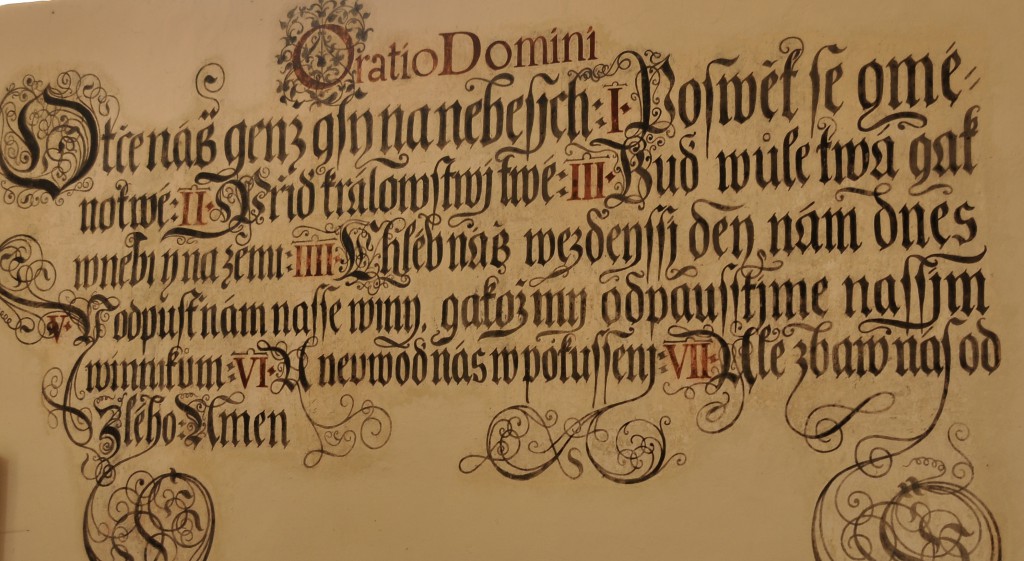 Oratio Domini
Otče náš genž gsy na nebesých: I. Poswět se gmé-
no twé: II. Přiď králowstwj twé: III. Buď wůle twá gak
w nebi y na zemi: IIII. Chléb náš wezdeyssj dey nám dnes
V. A odpust nám nasse winy, gakož my odpausstjme nassjm
winnikům: VI. A neuwoď nás w pokussenj: VII. Ale zbaw nás od
Zlého: Amen